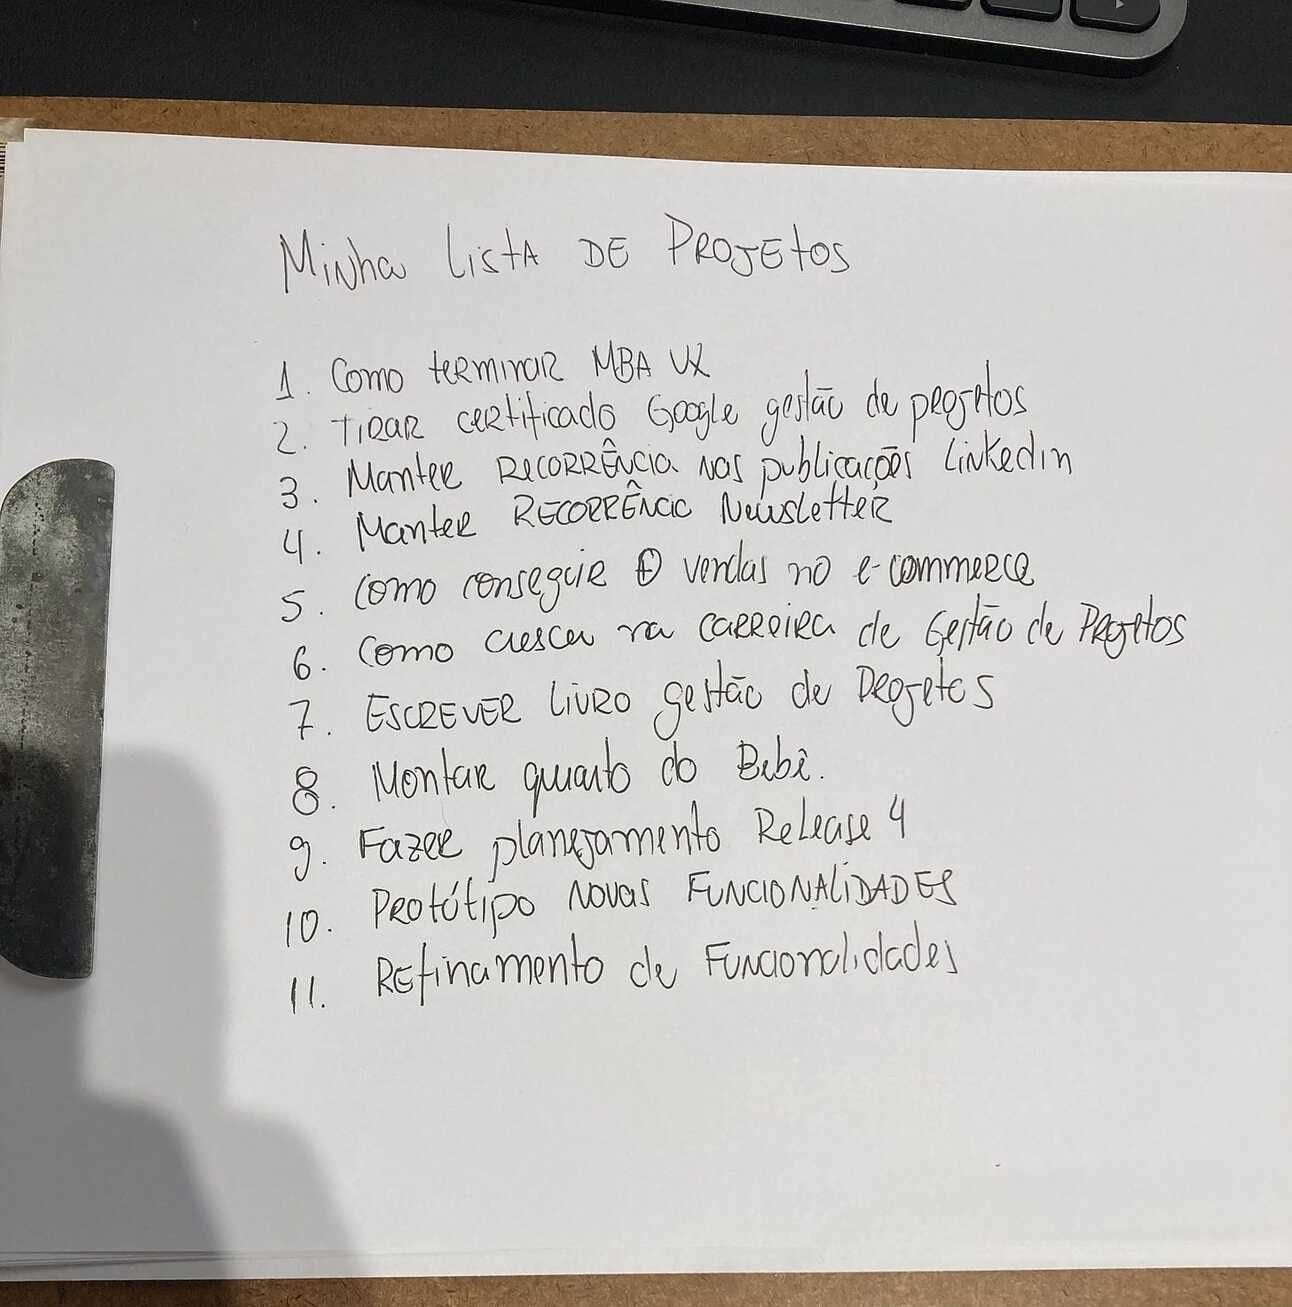 Minha Lista DE PROJEtos
1. Como terminar MBA UX
2. Tirar certificado Google gestão de projetos
3. Manter RECORRÊNCIA nas publicações Linkedin
4. Manter RECORRÊNCIA Newsletter
5. Como conseguir + vendas no e-commerce
6. Como crescer na carreira de Gestão de Projetos
7. ESCREVER Livro gestão de Projetos
8. Montar quarto do Bebê.
9. Fazer planejamento Release 4
10. Protótipo Novas FUNCIONALIDADES
11. Refinamento de Funcionalidades